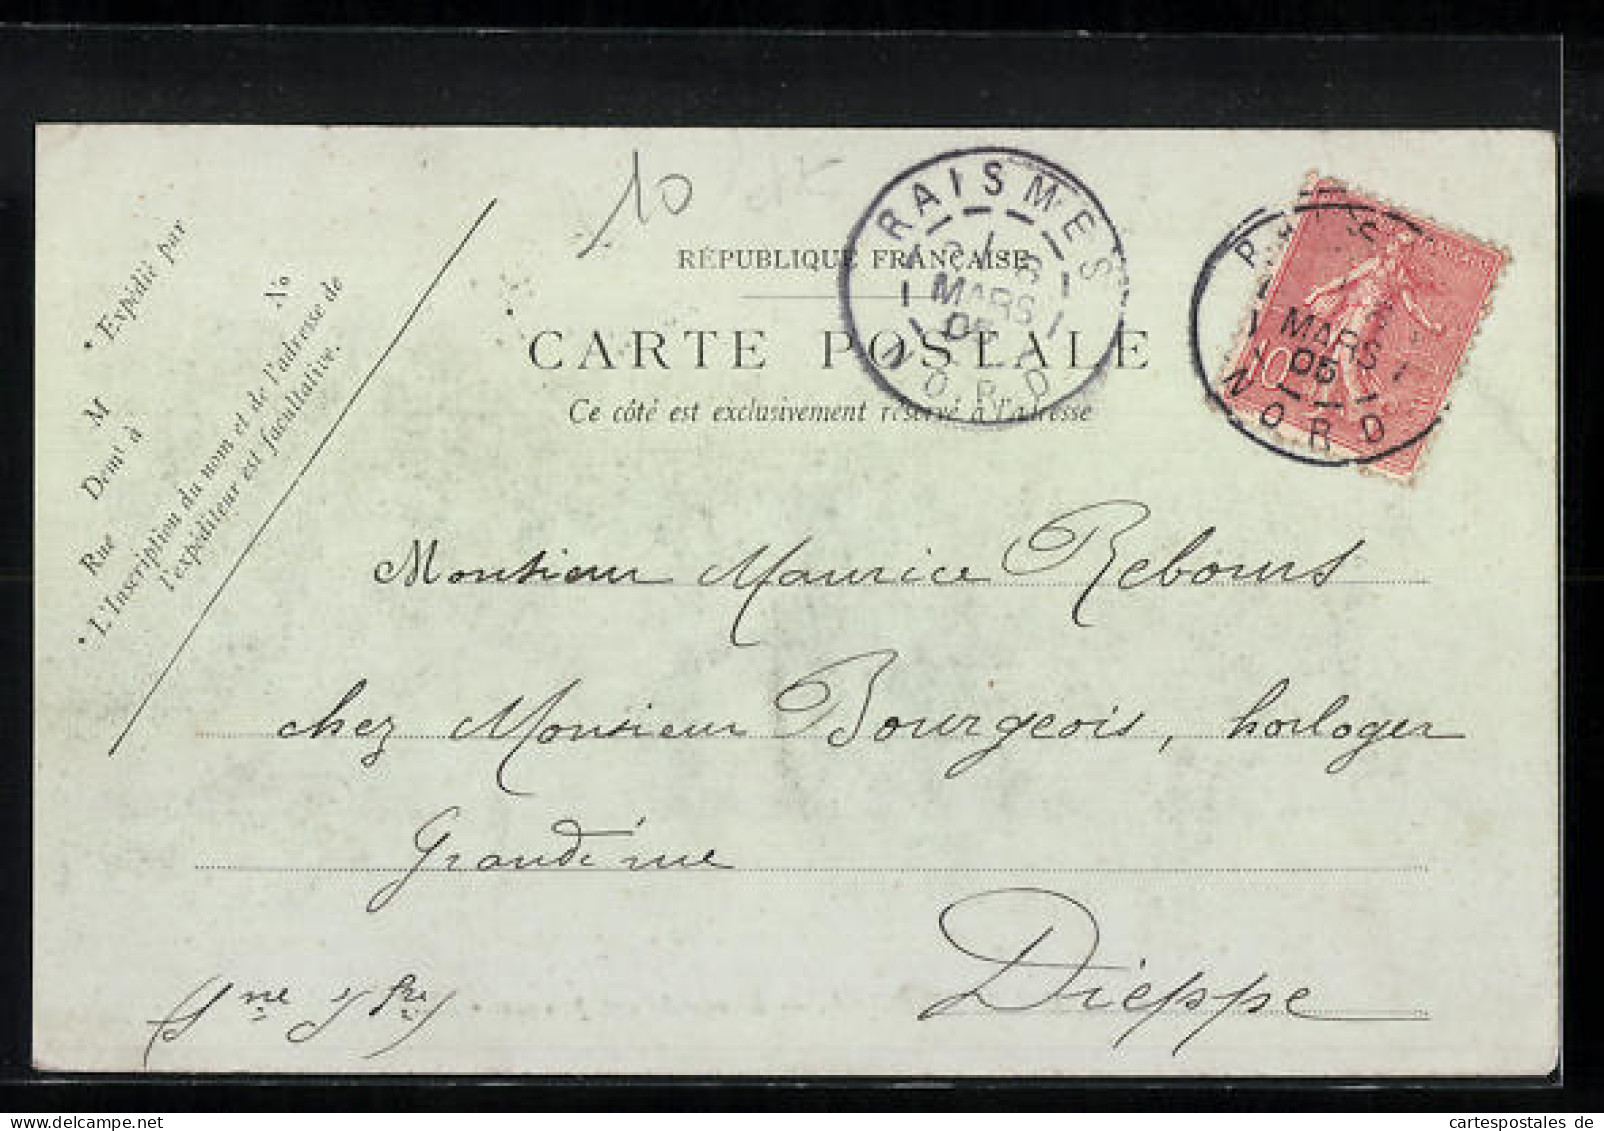 10
RÉPUBLIQUE FRANÇAISE
CARTE POSTALE
Ce côté est exclusivement réservé à l'adresse
RAISMES
MARS
05
NORD
MARS
05
NORD
10
• Expédié par
M
Demt à
Rue
No
• L'Inscription du nom et de l'adresse de
l'expéditeur est facultative.
Monsieur Maurice Rebours
chez Monsieur Bourgeois, horloger
Grande rue
Dieppe
(Sne Infre)
cartespostales de